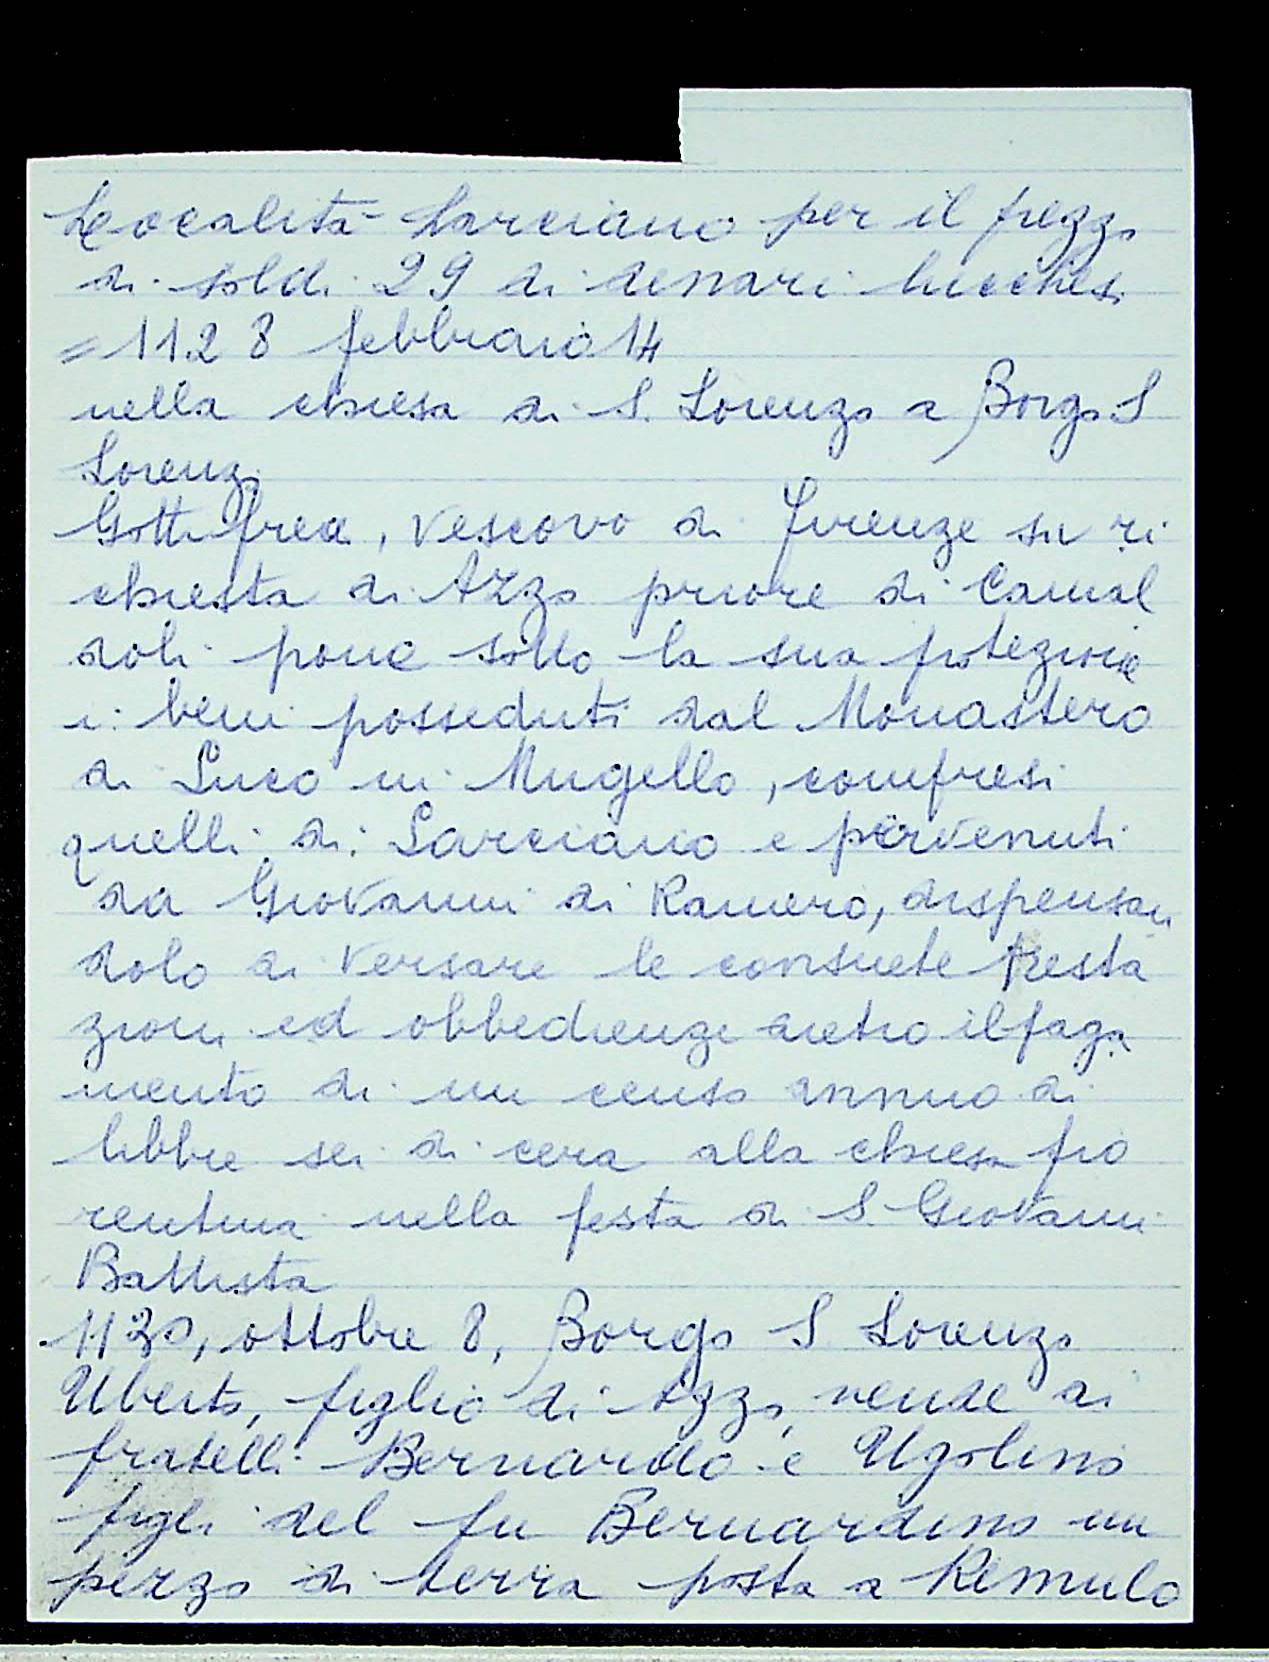 Località Larciano per il prezzo
di soldi 29 di denari lucchesi
=1128 febbraio 14
nella chiesa di S. Lorenzo a Borgo S
Lorenzo
Gottifredi, vescovo di Firenze su ri
chiesta di Azzo priore di Camal
doli pone sotto la sua protezione
i beni posseduti dal Monastero
di Luco in Mugello, compresi
quelli di Larciano e pervenuti
da Giovanni di Raniero, dispensan
dolo di versare le consuete presta
zioni ed obbedienze dietro il paga
mento di un censo annuo di
libbre sei di cera alla chiesa fio
rentina nella festa di S. Giovanni
Battista
1130, ottobre 8, Borgo S Lorenzo
Uberto, figlio di Azzo, vende ai
fratelli Bernardo e Ugolino
figli del fu Bernardino un
pezzo di terra posta a Remulo